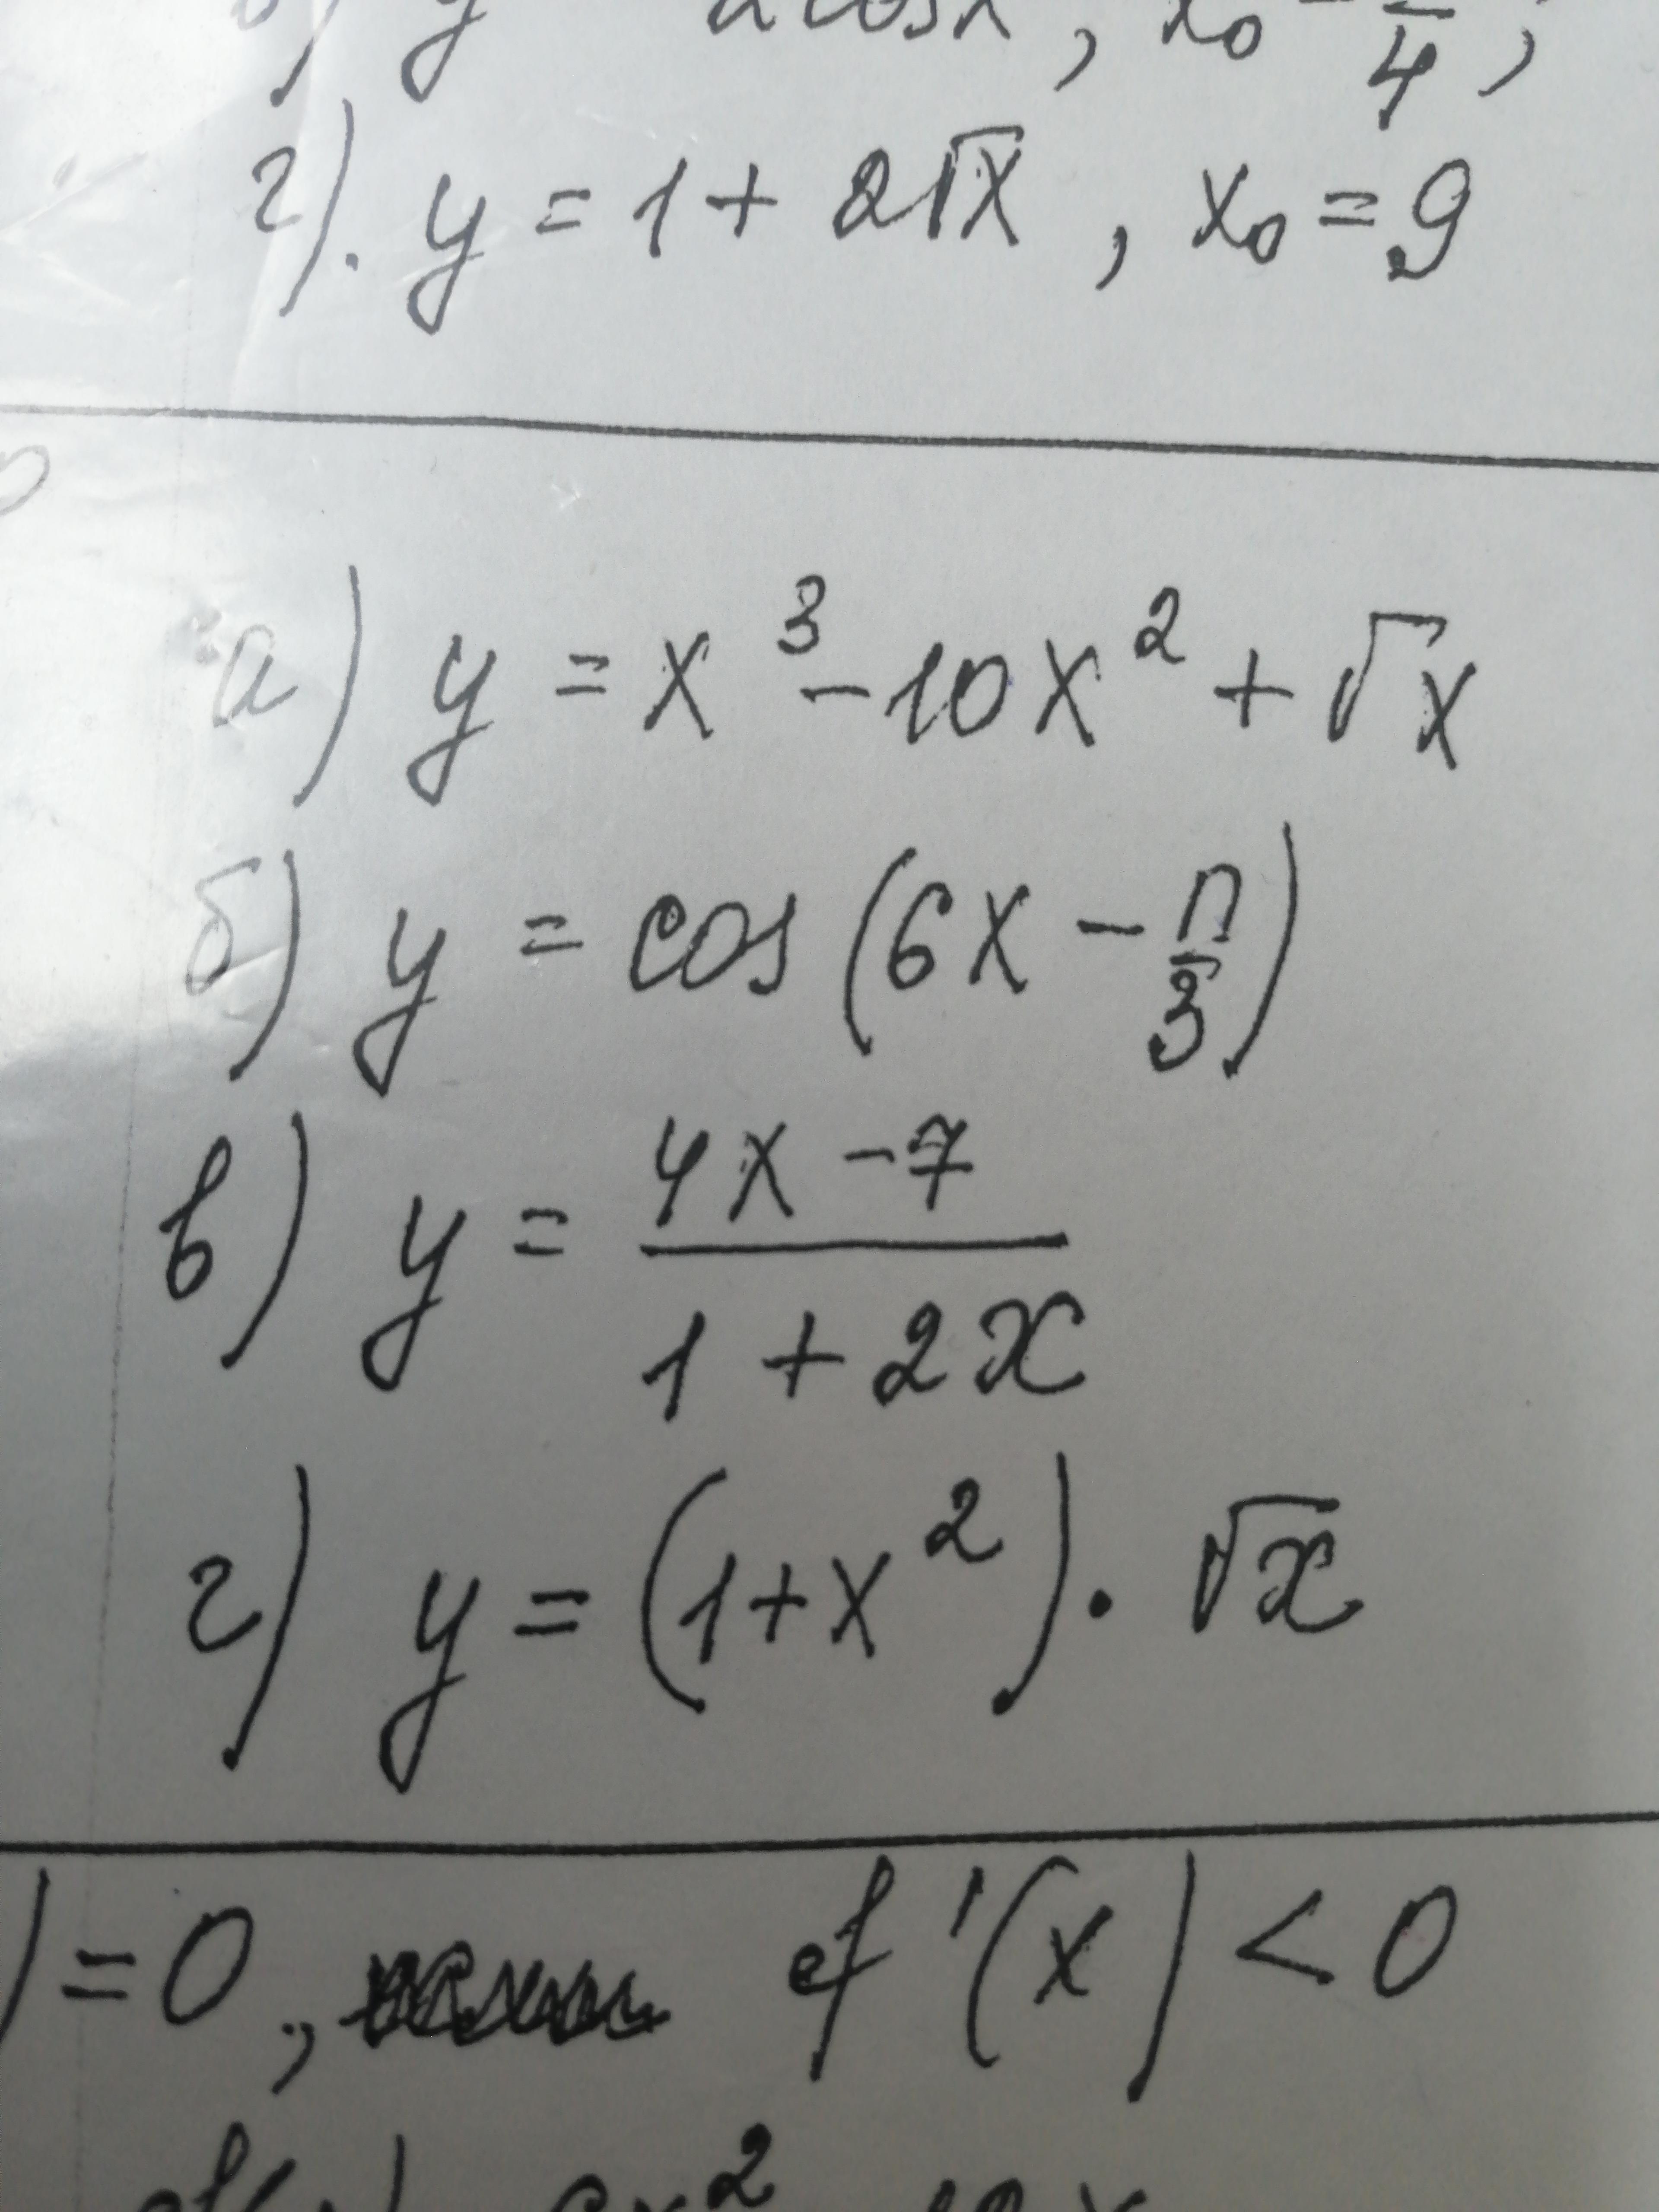 в) y 2cosx, x₀ = π/4;
г). y = 1 + 2√x, x₀ = 9
а) y = x³ - 10x² + √x
б) y = cos(6x - π/3)
в) y = (4x - 7)/(1 + 2x)
г) y = (1+x²) · √x
) = 0, f'(x) < 0